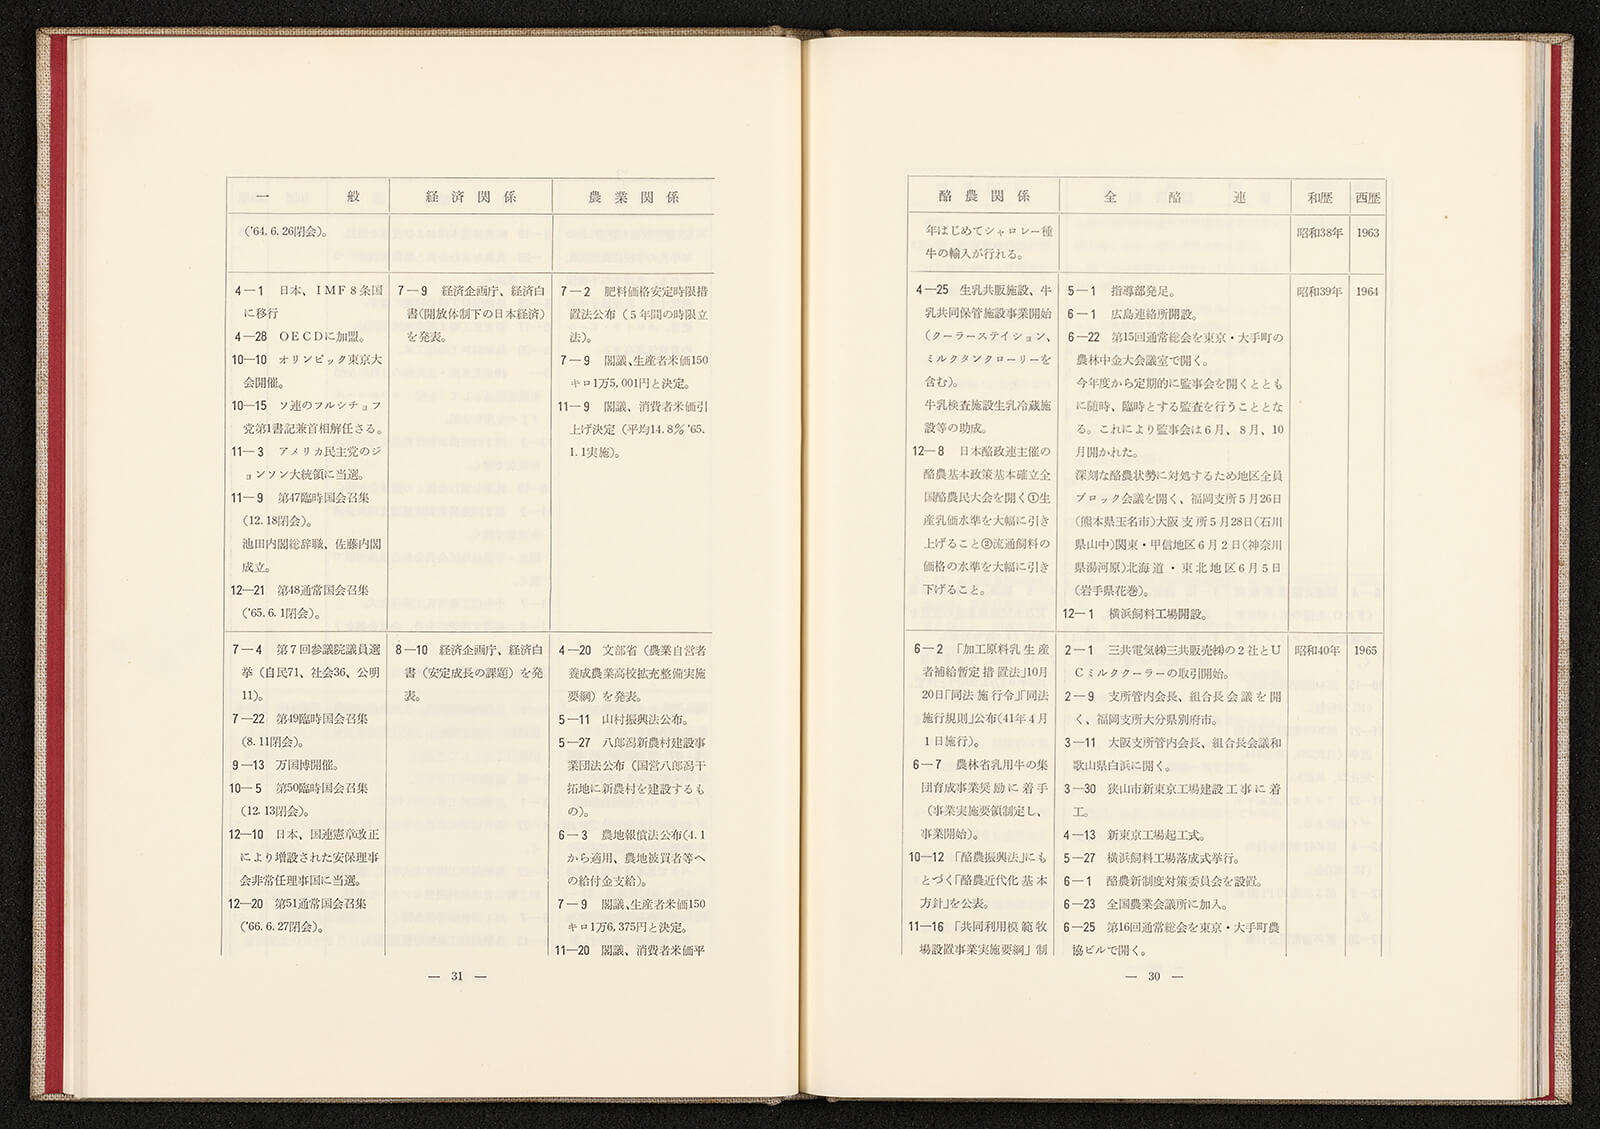 西歴
和歴
全酪連
酪農関係
1963
昭和38年
年はじめてシャロレー種
牛の輸入が行れる。
1964
昭和39年
5―1 指導部発足。
6―1 広島連絡所開設。
6―22 第15回通常総会を東京・大手町の
農林中金大会議室で開く。
今年度から定期的に監事会を開くととも
に随時、臨時とする監査を行うこととな
る。これにより監事会は6月、8月、10
月開かれた。
深刻な酪農状勢に対処するため地区全員
ブロック会議を開く、福岡支所5月26日
(熊本県玉名市)大阪支所5月28日(石川
県山中)関東・甲信地区6月2日(神奈川
県湯河原)北海道・東北地区6月5日
(岩手県花巻)。
12―1 横浜飼料工場開設。
4―25 生乳共販施設、牛
乳共同保管施設事業開始
(クーラーステイション、
ミルクタンクローリーを
含む)。
牛乳検査施設生乳冷蔵施
設等の助成。
12―8 日本酪政連主催の
酪農基本政策基本確立全
国酪農民大会を開く①生
産乳価水準を大幅に引き
上げること②流通飼料の
価格の水準を大幅に引き
下げること。
1965
昭和40年
2―1 三共電気㈱三共販売㈱の2社とU
Cミルククーラーの取引開始。
2―9 支所管内会長、組合長会議を開
く、福岡支所大分県別府市。
3―11 大阪支所管内会長、組合長会議和
歌山県白浜に開く。
3―30 狭山市新東京工場建設工事に着
工。
4―13 新東京工場起工式。
5―27 横浜飼料工場落成式挙行。
6―1 酪農新制度対策委員会を設置。
6―23 全国農業会議所に加入。
6―25 第16回通常総会を東京・大手町農
協ビルで開く。
6―2 「加工原料乳生産
者補給暫定措置法」10月
20日「同法施行令」「同法
施行規則」公布(41年4月
1日施行)。
6―7 農林省乳用牛の集
団育成事業奨励に着手
(事業実施要領制定し、
事業開始)。
10―12 「酪農振興法」にも
とづく「酪農近代化基本
方針」を公表。
11―16 「共同利用模範牧
場設置事業実施要綱」制
― 30 ―
農業関係
経済関係
一般
('64.6.26閉会)。
7―2 肥料価格安定時限措
置法公布(5年間の時限立
法)。
7―9 閣議、生産者米価150
キロ1万5,001円と決定。
11―9 閣議、消費者米価引
上げ決定(平均14.8% '65.
1.1実施)。
7―9 経済企画庁、経済白
書(開放体制下の日本経済)
を発表。
4―1 日本、IMF8条国
に移行
4―28 OECDに加盟。
10―10 オリンピック東京大
会開催。
10―15 ソ連のフルシチョフ
党第1書記兼首相解任さる。
11―3 アメリカ民主党のジ
ョンソン大統領に当選。
11―9 第47臨時国会召集
(12.18閉会)。
池田内閣総辞職、佐藤内閣
成立。
12―21 第48通常国会召集
('65.6.1閉会)。
4―20 文部省(農業自営者
養成農業高校拡充整備実施
要綱)を発表。
5―11 山村振興法公布。
5―27 八郎潟新農村建設事
業団法公布(国営八郎潟干
拓地に新農村を建設するも
の)。
6―3 農地報償法公布(4.1
から適用、農地被買者等へ
の給付金支給)。
7―9 閣議、生産者米価150
キロ1万6,375円と決定。
11―20 閣議、消費者米価平
8―10 経済企画庁、経済白
書(安定成長の課題)を発
表。
7―4 第7回参議院議員選
挙(自民71、社会36、公明
11)。
7―22 第49臨時国会召集
(8.11閉会)。
9―13 万国博開催。
10―5 第50臨時国会召集
(12.13閉会)。
12―10 日本、国連憲章改正
により増設された安保理事
会非常任理事国に当選。
12―20 第51通常国会召集
('66.6.27閉会)。
― 31 ―